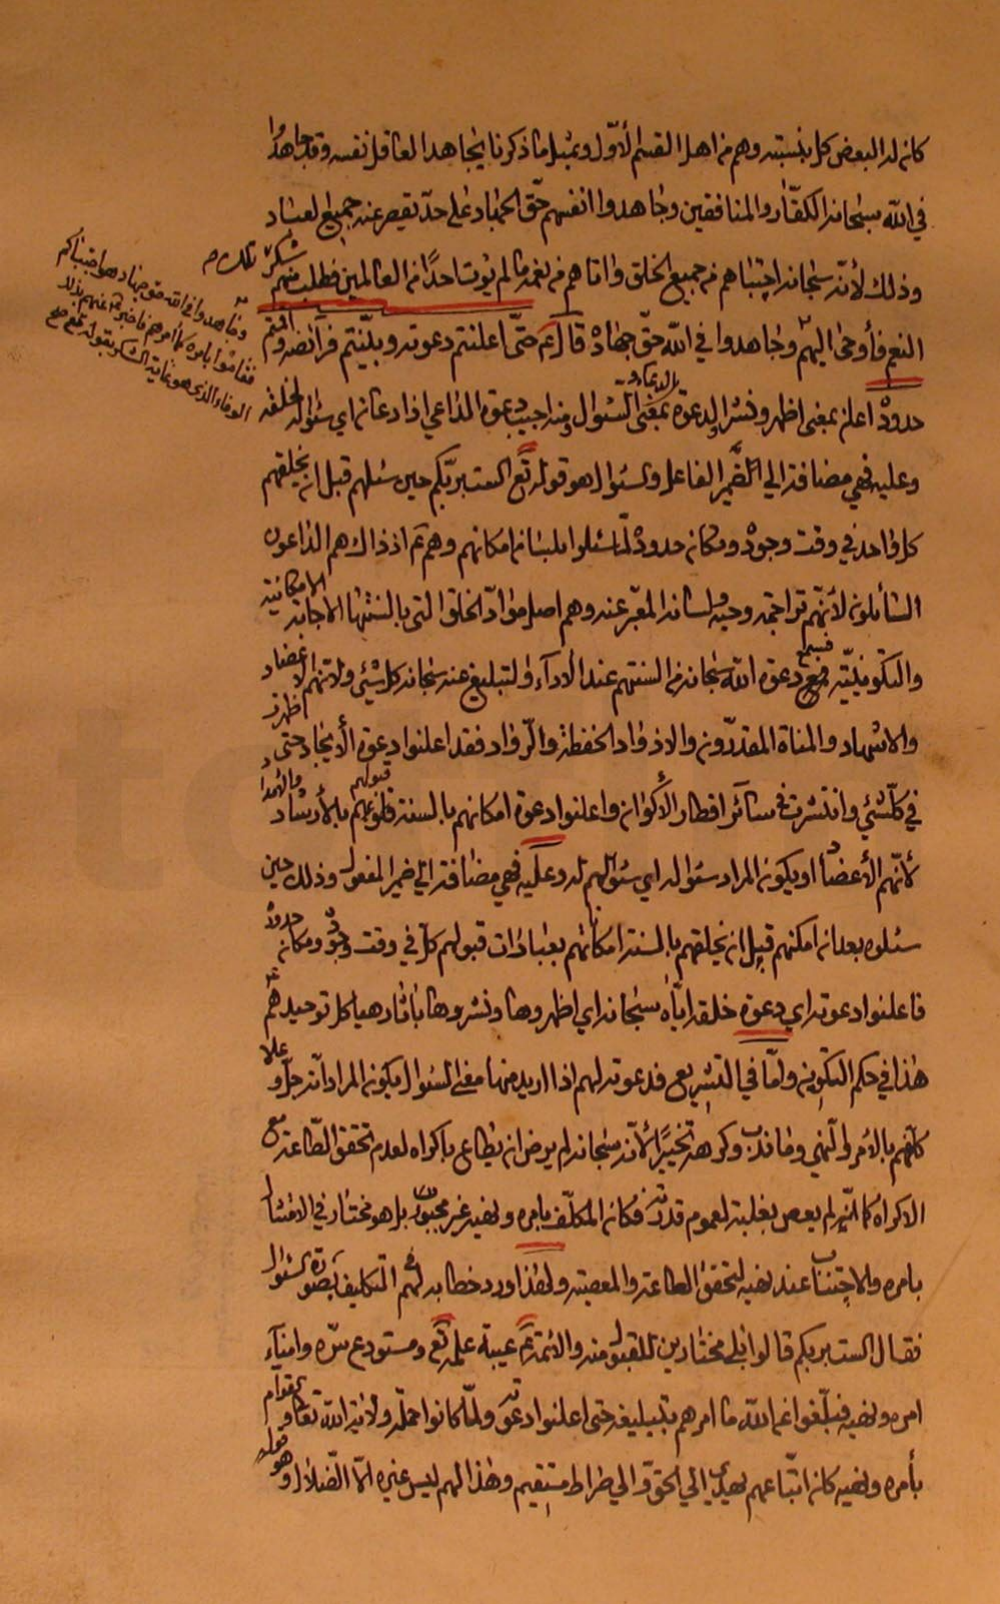 كان له البعض كل بنسبته وهم من اهل القسم الأوّل وبمثل ما ذكرنا يجاهد العاقل نفسه وقد جاهدوا
في الله سبحانه الكفّار والمنافقين وجاهدوا انفسهم حقّ الجهاد على حدّ يقصر عنه جميع العباد
وذلك لأنّه سبحانه اجتباهم من جميع الخلق واتاهم من نعمه ما لم يؤت احدًا من العالمين فطلب منهم شكر تلك
النعم فأوحى اليهم وجاهدوا في الله حقّ جهاده قال حتّى اعلنتم دعوته وبيّنتم فرائضه واقمتم
حدوده اعلن بمعنى اظهر ونشر والدعوة بمعنى السّؤال ومنه اجيب دعوة الداعي اذا دعان اي سؤاله لخلقه
وعليه فهي مضافة الى الضّمير الفاعل والسّؤال هو قوله تع الست بربّكم حين سئلهم قبل ان يخلقهم
كل واحد في وقت وجوده ومكان حدوده لمّا سئلوا بلسان امكانهم وهم اذ ذاك هم الداعون
السّائلون لأنّهم تراجمة وحيه ولسانه المعبّر عنه وهم اصل موادّ الخلق التي بالسنتها الاجابة الامكانية
والتكوينيّة فسمع دعوة الله سبحانه من السنتهم عند الأداء والتبليغ عنه سبحانه كل شئ ولأنهم الاعضاد
والاشهاد والمناة المقدّرون والاذواد الحفظة والرّواد فقد اعلنوا دعوة الأيجاد حتى ظهرت
في كلّ شئ وانتشرت في سائر اقطار الأكوان واعلنوا دعوة امكانهم بالسنة قلوبهم قبولهم بالأرشاد والهدا
لأنّهم الأعضاد او يكون المراد سؤاله اي سؤالهم له وعليه فهي مضافة الى ضمير المفعول وذلك حين
سئلوه بعد ان امكنهم قبل ان يخلقهم بالسنة امكانهم بعبارات قبولهم كلّ في وقت وجوده ومكان حدوده
فاعلنوا دعوته اي دعوة خلقه ايّاه سبحانه اي اظهروها ونشروها باثار هياكل توحيدهم
هذا في حكم التكوين وامّا في التشريع فدعوته لهم اذا اريد منها معنى السّؤال يكون المراد انّه جلّ وعلا
كلّفهم بالأمر والنهي وما ندب وكره تخييرًا لأنّه سبحانه لم يرض ان يطاع باكراه لعدم تحقق الطّاعة مع
الاكراه كما انّه لم يعص بغلبة لعموم قدرته فكان المكلّف بامره ونهيه غير مجبور بل هو مختار في الامتثال
بامره والاجتناب عند نهيه لتحقق الطاعة والمعصية ولهذا اورد خطابه لهم التكليف بصورة السّؤال
فقال الست بربكم قالوا بلى مختارين للقبول منه والائمة عيبة علمه تع ومستودع سرّه وامناء
امره ونهيه فبلّغوا عن الله ما امرهم بتبليغه حتى اعلنوا دعوته ولمّا كانوا حملة ولاية الله تعالى وقوّام
بأمره ونهيه كان اتباعهم يهدي الى الحق والى طراط مستقيم وهذا لهم ليس غيره الّا الضّلال وهو قوله
وجاهدوا في الله حق جهاده هو اجتباكم
فقاموا بامره كما امرهم فاخبر عنهم بذلك
الوفاء الذي هو غاية الشكر بقوله تع